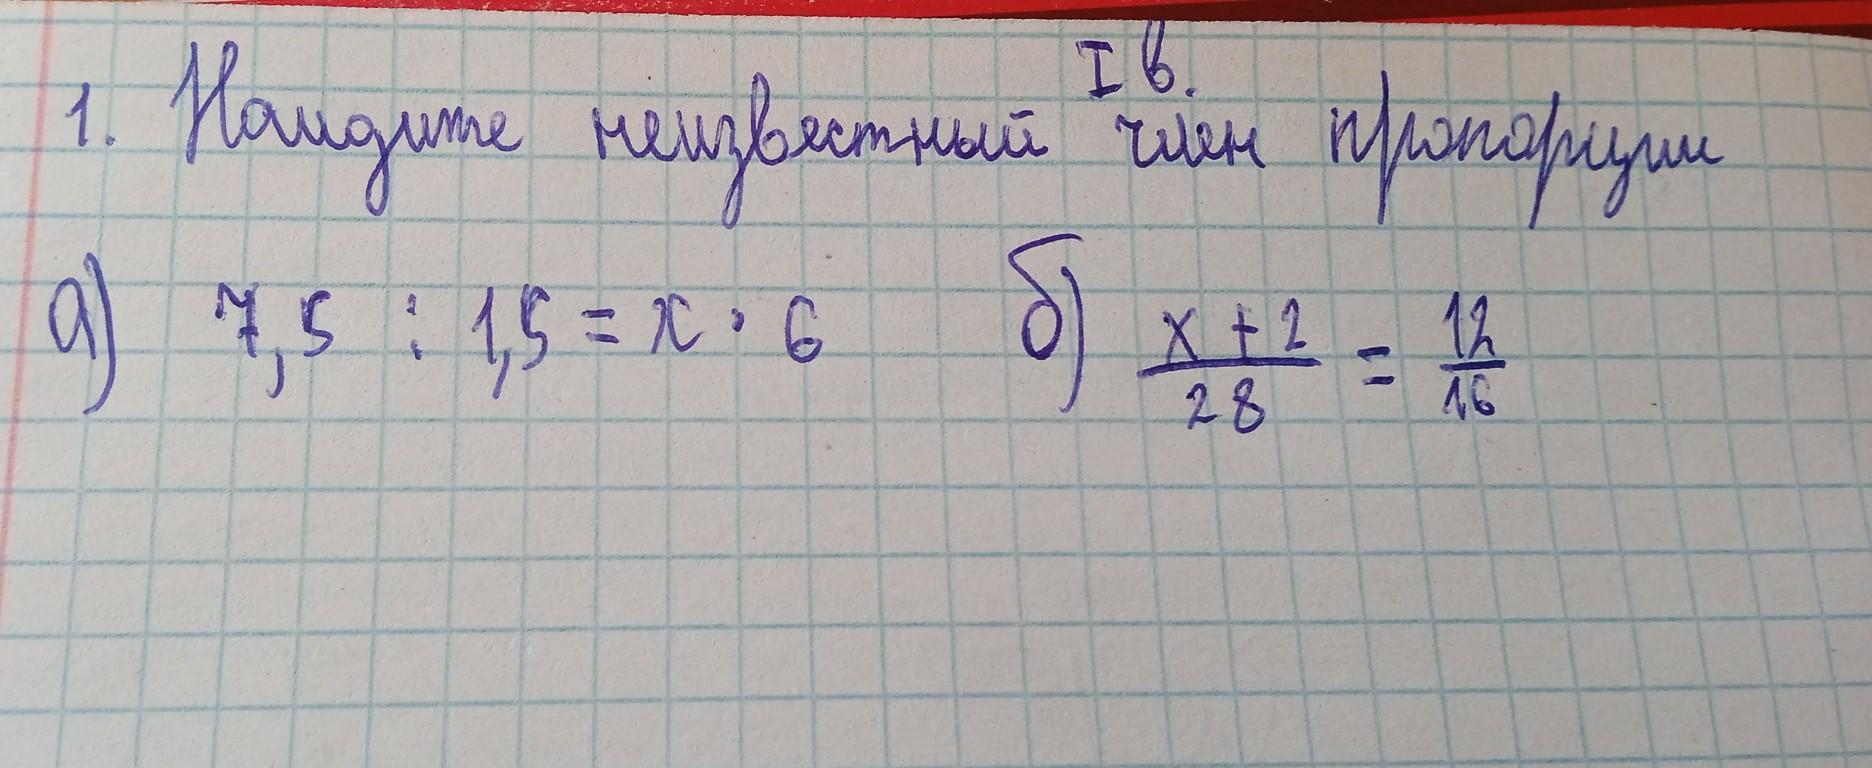 I в.
1. Найдите неизвестный член пропорции
а) 7,5 : 1,5 = x · 6 б) \frac{x+2}{28} = \frac{12}{16}